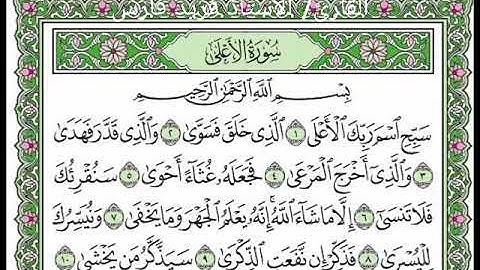 القارئ / الاستاذ فويد فارس
سُورَةُ الأَعْلَى
بِسْمِ اللَّهِ الرَّحْمَٰنِ الرَّحِيمِ
سَبِّحِ اسْمَ رَبِّكَ الْأَعْلَى ١ الَّذِي خَلَقَ فَسَوَّىٰ ٢ وَالَّذِي قَدَّرَ فَهَدَىٰ
٣ وَالَّذِي أَخْرَجَ الْمَرْعَىٰ ٤ فَجَعَلَهُ غُثَاءً أَحْوَىٰ ٥ سَنُقْرِئُكَ
فَلَا تَنسَىٰ ٦ إِلَّا مَا شَاءَ اللَّهُ ۚ إِنَّهُ يَعْلَمُ الْجَهْرَ وَمَا يَخْفَىٰ ٧ وَنُيَسِّرُكَ
لِلْيُسْرَىٰ ٨ فَذَكِّرْ إِن نَّفَعَتِ الذِّكْرَىٰ ٩ سَيَذَّكَّرُ مَن يَخْشَىٰ ١٠